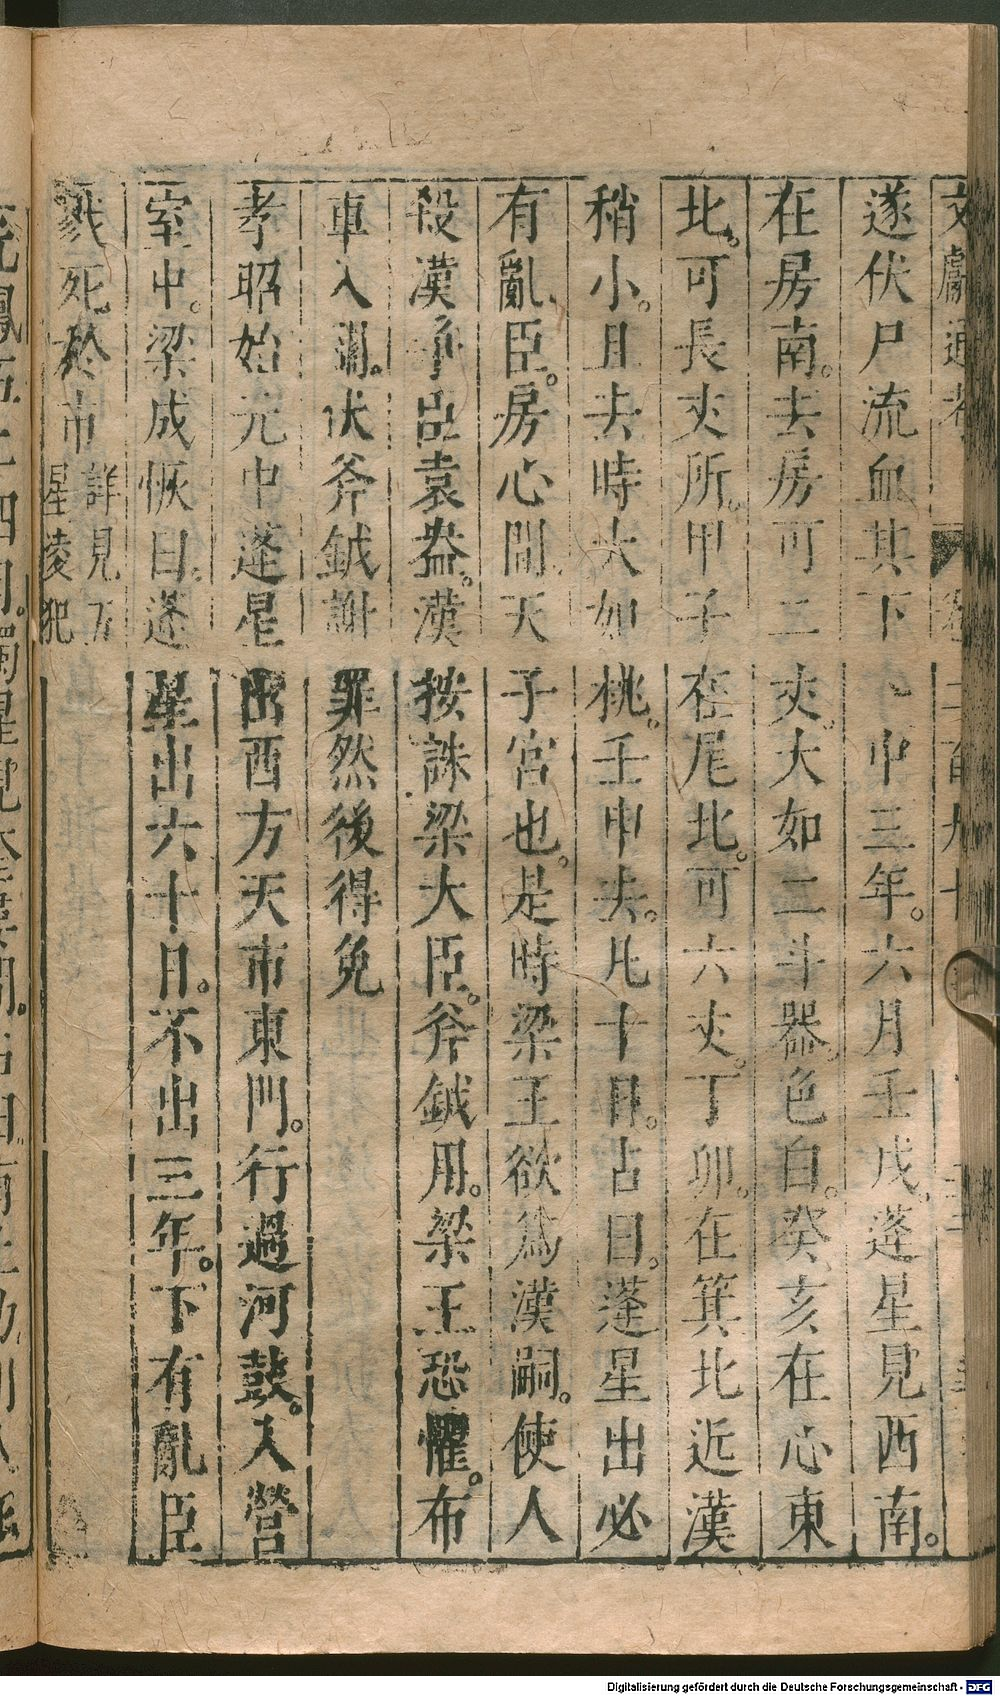 文獻通考 卷二百九十
遂伏尸流血其下 中三年。六月壬戌。蓬星見西南。
在房南。去房可二丈。大如二斗器。色白。癸亥在心東
北。可長丈所。甲子在尾北。可六丈。丁卯。在箕北近漢
稍小。且去時大如桃。壬申去。凡十日。占曰。蓬星出必
有亂臣。房心間天子宮也。是時梁王欲為漢嗣。使人
殺漢爭臣袁盎。漢按誅梁大臣。斧鉞用。梁王恐懼。布
車入關。伏斧鉞謝罪然後得免
孝昭始元中蓬星出西方天市東門。行過河鼓。入營
室中。梁成恢曰。蓬星出六十日。不出三年。下有亂臣
戮死於市 詳見五
星凌犯
Digitalisierung gefördert durch die Deutsche Forschungsgemeinschaft - DFG